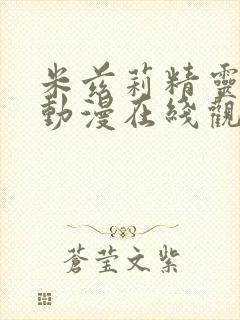 米兹莉精靈
動漫在綫觀
蒼莹文紫